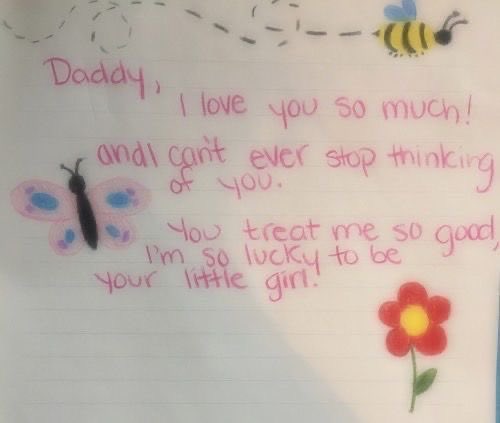 Daddy,
I love you so much!
and I can't ever stop thinking
of you.
You treat me so good,
I'm so lucky to be
your little girl!